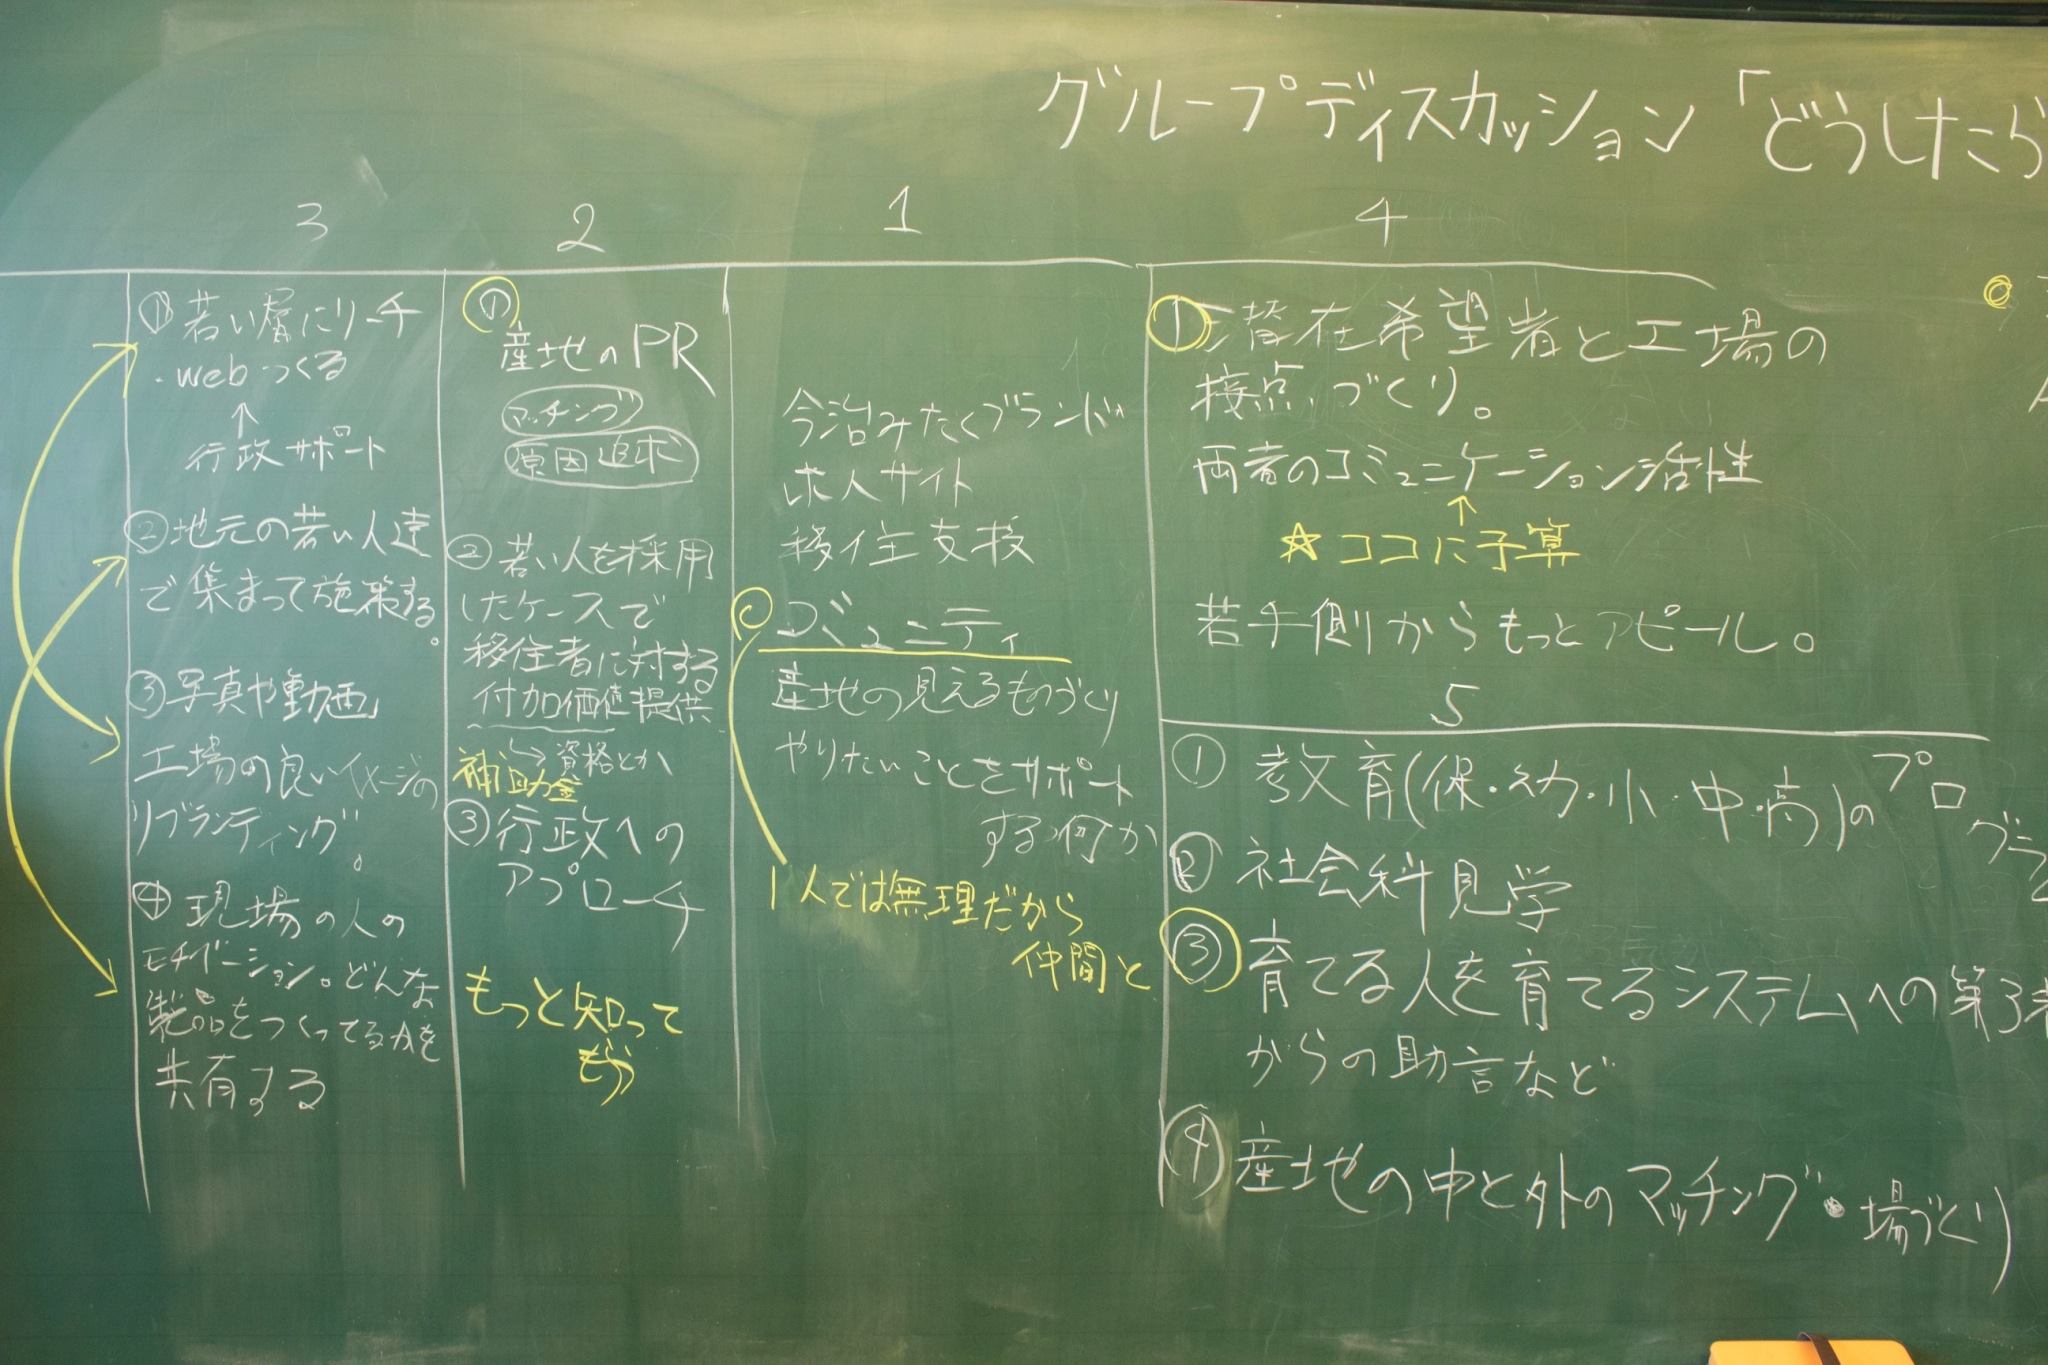 グループディスカッション「どうしたら
3
① 若い層にリーチ
・webつくる
↑
行政サポート
②地元の若い人達
で集まって施策する。
③写真や動画
工場の良いイメージの
リブランディング。
④現場の人の
モチベーション。どんな
製品をつくってるかを
共有する
2
①
産地のPR
マッチング
原因追求
②若い人を採用
したケースで
移住者に対する
付加価値提供
→資格とか
補助金
③行政への
アプローチ
もっと知って
もらう
1
今治みたくブランド
求人サイト
移住支援
コミュニティ
産地の見えるものづくり
やりたいことをサポート
する何か
1人では無理だから
仲間と
4
① 潜在希望者と工場の
接点づくり。
両者のコミュニケーション活性
↑
☆ココに予算
若手側からもっとアピール。
5
① 教育(保・幼・小・中・高)のプログラ
② 社会科見学
③ 育てる人を育てるシステムへの第3者
からの助言など
④ 産地の中と外のマッチング・場づくり